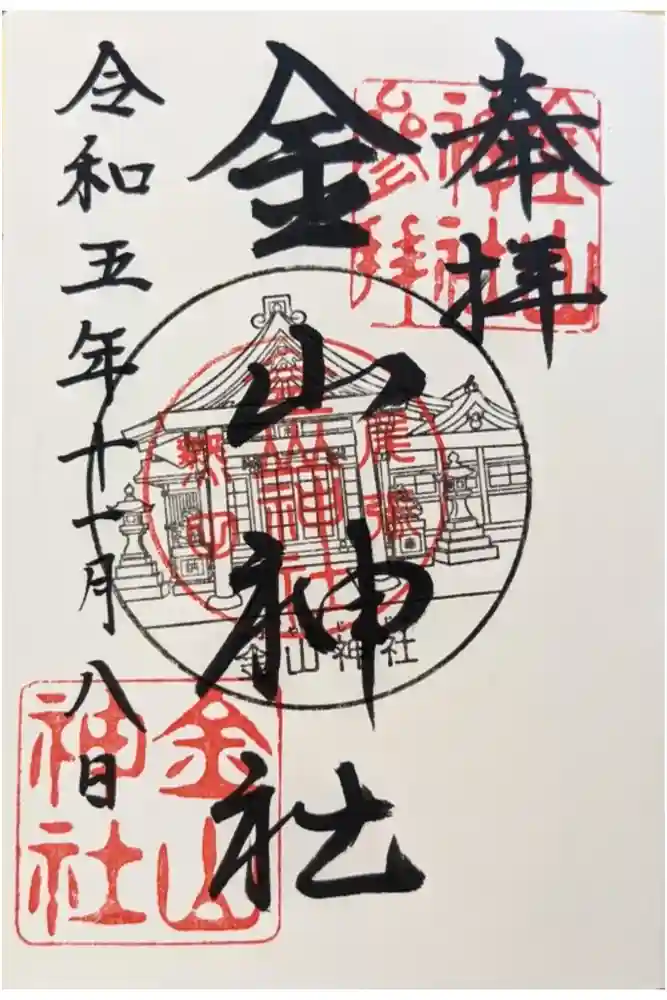 奉拝
金山
神社
参拝
金山神社
尾張
金山神社
金山神社
令和五年十一月八日
金山
神社